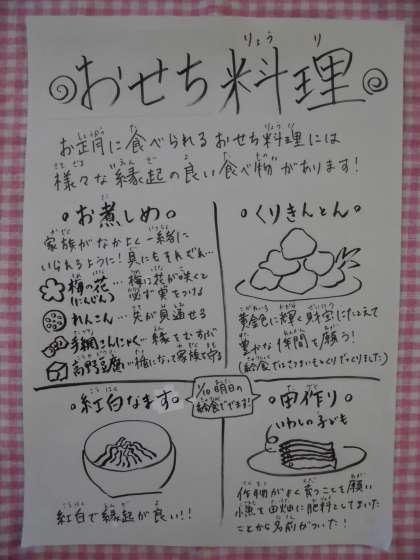 おせち料理
お正月に食べられるおせち料理には
様々な縁起の良い食べ物があります!
お煮しめ
家族がなかよく一緒に
いられるように!具にもそれぞれ…
梅の花(にんじん)…梅は花が咲くと
必ず実をつける
れんこん…穴が見通せる
手綱こんにゃく…縁をむすぶ
高野豆腐…楯になって家族を守る
くりきんとん
黄金色に輝く財宝にたとえて
豊かな1年間を願う!
(給食ではさつまいもでつくりました)
紅白なます
紅白で縁起が良い!!
1/10 明日の
給食でです!
田作り
いわしの子ども
作物がよく育つことを願い
小魚を田畑に肥料としてまいた
ことから名前がついた!